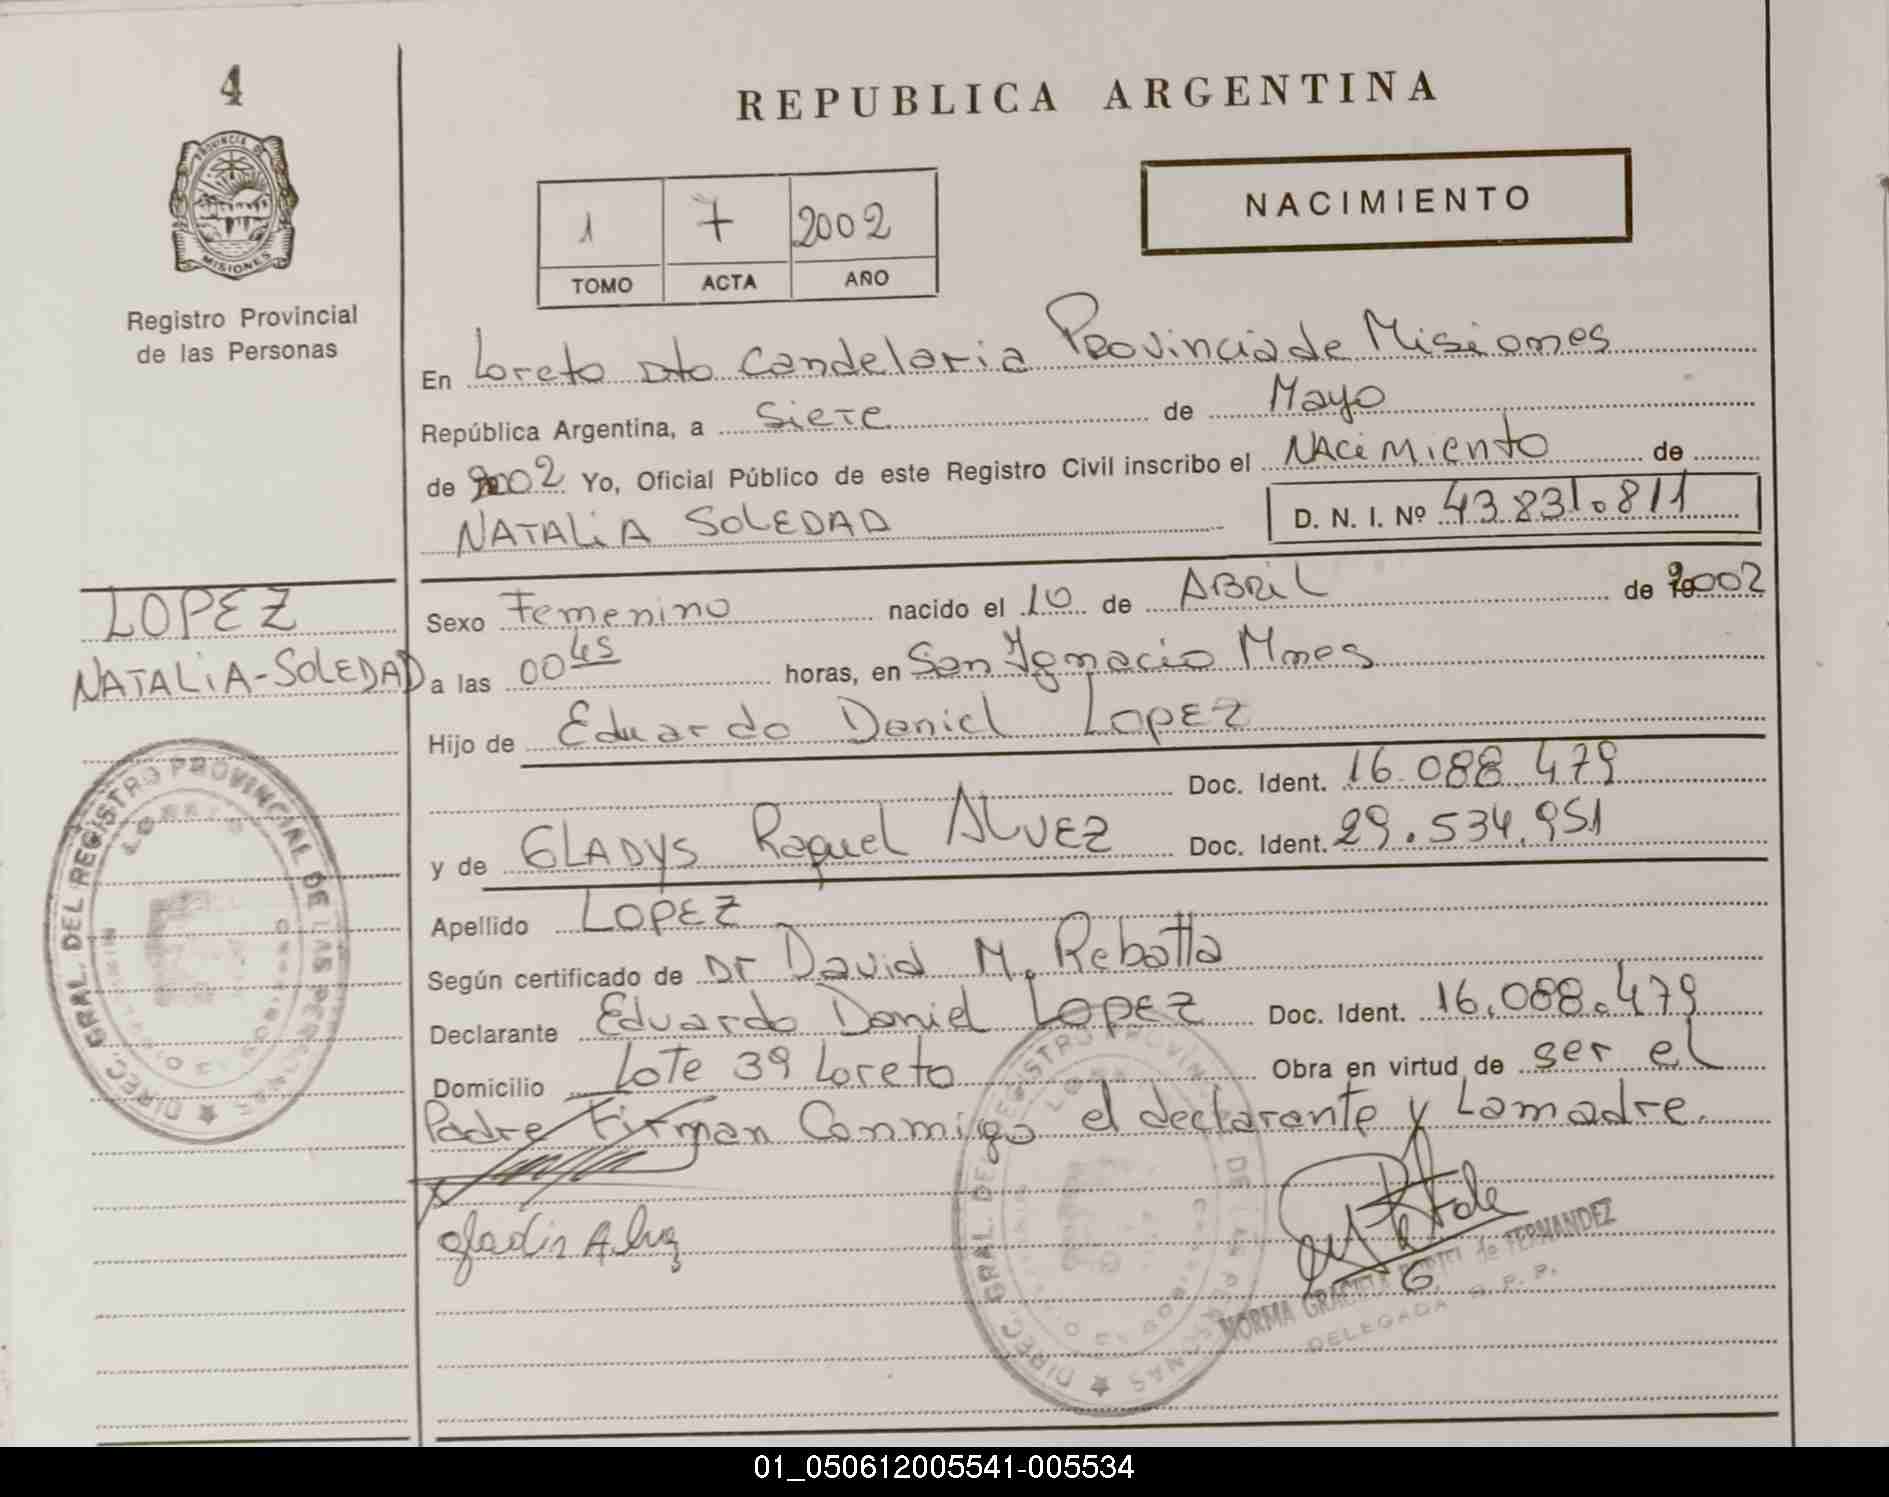 4
PROVINCIA DE
MISIONES
Registro Provincial
de las Personas
REPUBLICA ARGENTINA
NACIMIENTO
1 7 2002
TOMO ACTA AÑO
En Loreto Dto Candelaria Provincia de Misiones
República Argentina, a siete de Mayo
de 2002 Yo, Oficial Público de este Registro Civil inscribo el NAciMiento de
NATALiA SOLEDAD D. N. I. Nº 43.831.811
LOPEZ
NATALiA-SOLEDAD
Sexo Femenino nacido el 10 de ABRiL de 2002
a las 00 45 horas, en San Ignacio Mnes
Hijo de Eduardo Daniel LOPEZ
Doc. Ident. 16.088.479
y de GLADYS Raquel ALVEZ Doc. Ident. 29.534.951
Apellido LOPEZ
Según certificado de Dr David M. Rebatta
Declarante Eduardo Daniel LOPEZ Doc. Ident. 16.088.479
Domicilio Lote 39 Loreto Obra en virtud de ser el
Padre Firman Conmigo el declarante y La madre.
DIREC. GRAL. DEL REGISTRO PROVINCIAL DE LAS PERSONAS
LORETO
DIREC. GRAL. DEL REGISTRO PROVINCIAL DE LAS PERSONAS
NORMA GRACIELA de FERNANDEZ
DELEGADA R. P. P.
01_050612005541-005534